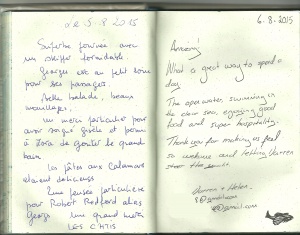 Le 5-8 2015
Superbe journée avec
un skipper formidable.
Georges est au petit soin
pour ses passagers.
Belle balade, beaux
mouillages.
un merci particulier pour
avoir et permis
à Zora de gouter le grand
bain
Les pâtes aux Calamars
étaient délicieuses
Une pensée particulière
pour Robert Redford alias
Georgs une grand merci
LES CH'TIS
6.8.2015
Amazing!
What a great way to spend a
day
The open water swimming in
the clear sea, enjoying good
food and super hospitality.
Thank you for making us feel
so welcome and letting Darren
steer the
Darren + Helen.